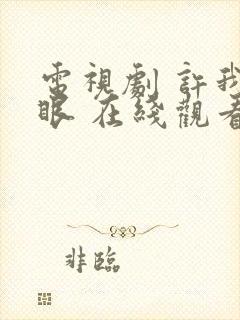 電視劇 許我
眼 在綫觀看
非臨